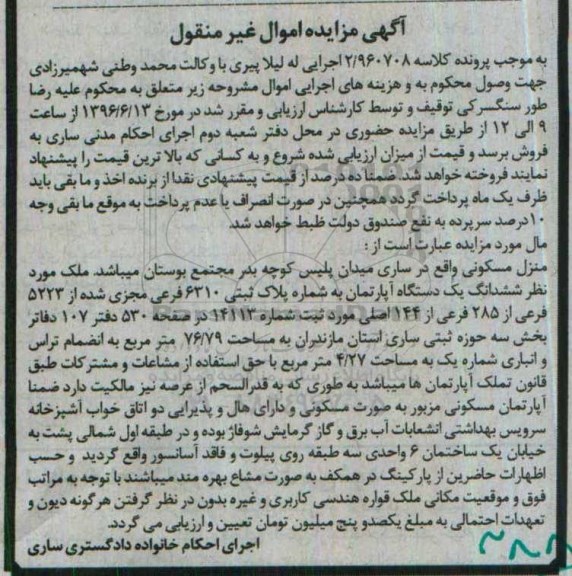 آگهی مزایده اموال غیر منقول
به موجب پرونده کلاسه ۲/۹۶۰۷۰۸ اجرایی له لیلا پیری با وکالت محمد وطنی شهمیرزادی
جهت وصول محکوم به و هزینه های اجرایی اموال مشروحه زیر متعلق به محکوم علیه رضا
طور سنگسرکی توقیف و توسط کارشناس ارزیابی و مقرر شد در مورخ ۱۳۹۶/۶/۱۳ از ساعت
۹ الی ۱۲ از طریق مزایده حضوری در محل دفتر شعبه دوم اجرای احکام مدنی ساری به
فروش برسد و قیمت از میزان ارزیابی شده شروع و به کسانی که بالا ترین قیمت را پیشنهاد
نمایند فروخته خواهد شد. ضمنا ده درصد از قیمت پیشنهادی نقدا از برنده اخذ و ما بقی باید
ظرف یک ماه پرداخت گردد همچنین در صورت انصراف یا عدم پرداخت به موقع ما بقی وجه
۱۰ درصد سپرده به نفع صندوق دولت ظبط خواهد شد.
مال مورد مزایده عبارت است از :
منزل مسکونی واقع در ساری میدان پلیس کوچه بدر مجتمع بوستان میباشد. ملک مورد
نظر ششدانگ یک دستگاه آپارتمان به شماره پلاک ثبتی ۶۳۱۰ فرعی مجزی شده از ۵۲۲۳
فرعی از ۲۸۵ فرعی از ۱۴۴ اصلی مورد ثبت شماره ۱۴۱۱۳ در صفحه ۵۳۰ دفتر ۱۰۷ دفاتر
بخش سه حوزه ثبتی ساری استان مازندران به مساحت ۷۶/۷۹ متر مربع به انضمام تراس
و انباری شماره یک به مساحت ۴/۲۷ متر مربع با حق استفاده از مشاعات و مشترکات طبق
قانون تملک آپارتمان ها میباشد به طوری که به قدرالسحم از عرصه نیز مالکیت دارد ضمنا
آپارتمان مسکونی مزبور به صورت مسکونی و دارای هال و پذیرایی دو اتاق خواب آشپزخانه
سرویس بهداشتی انشعابات آب برق و گاز گرمایش شوفاژ بوده و در طبقه اول شمالی پشت به
خیابان یک ساختمان ۶ واحدی سه طبقه روی پیلوت و فاقد آسانسور واقع گردید و حسب
اظهارات حاضرین از پارکینگ در همکف به صورت مشاع بهره مند میباشند با توجه به مراتب
فوق و موقعیت مکانی ملک قواره هندسی کاربری و غیره بدون در نظر گرفتن هرگونه دیون و
تعهدات احتمالی به مبلغ یکصدو پنج میلیون تومان تعیین و ارزیابی می گردد.
اجرای احکام خانواده دادگستری ساری